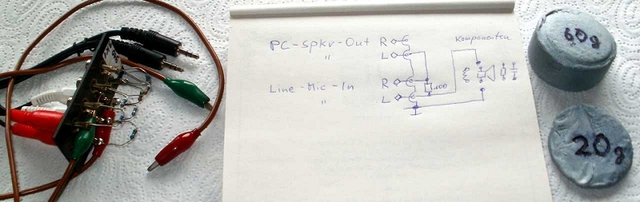 PC-Spkr-Out R
" L
Komponenten
Line-Mic-In R
" L
100
60g
20g